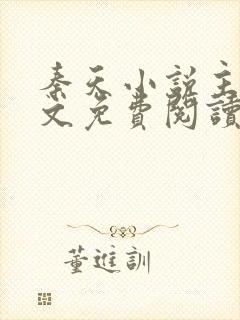 秦天小說主
文免費閱讀
董進訓